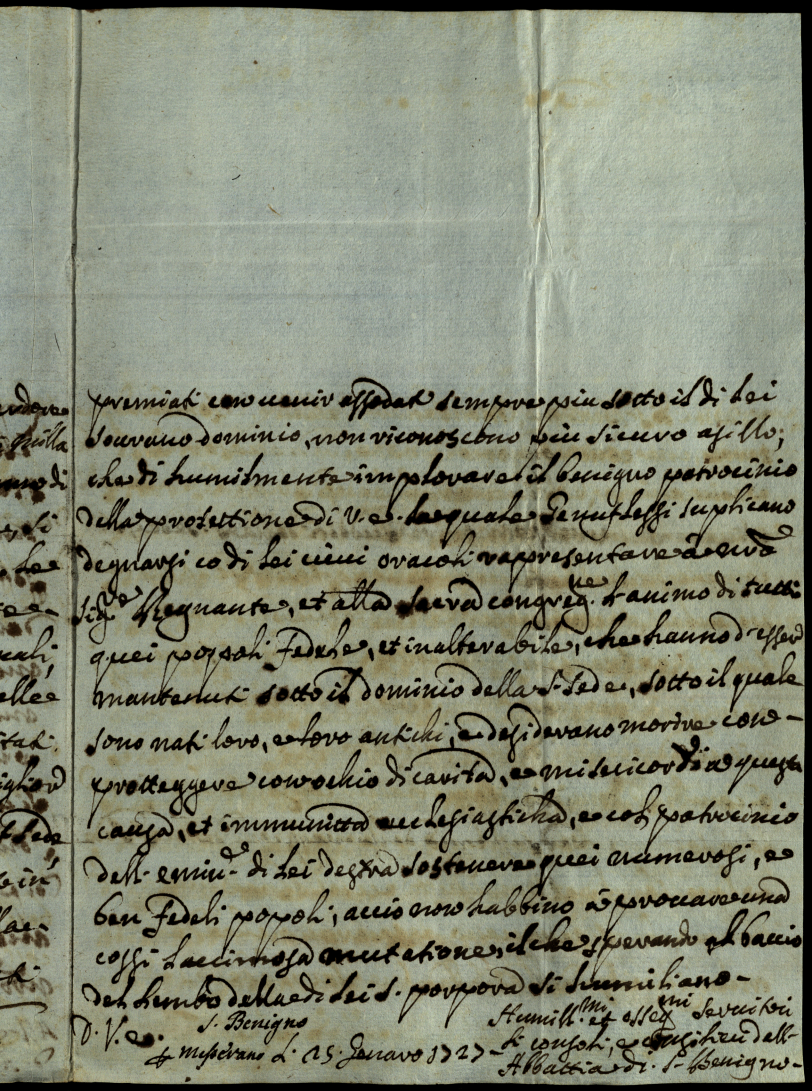 premiati con venir assodati sempre piu sotto il di Lei
sourano dominio, non riconoscono piu sicuro asillo,
che di humilmente implorare il benigno patrocinio
della protettione di V. e. le quale Genuflessi suplicano
degnarsi co di Lei vivi oracoli rappresentare à nrõ
Sig.re Regnante, et alla sacra congreg.ne L'animo di tutti
quei popoli Fedele, et inalterabile, che hanno d'esser
mantenuti sotto il dominio della S. Sede, sotto il quale
sono nati loro, e loro antichi, e desiderano morire con
protteggere con ochio di carità, e misericordia questa
causa, et immunittà ecclesiasticha, e col patrocinio
dell' emin.de di Lei destra sostenere quei numerosi, e
ben Fedeli popoli, accio non habbino à provare una
cossi Laccimosa mutatione, il che sperando al baccio
del Lembo della di Lei S. porpora si humiliano
D. V. e.
S. Benigno
Messerano L. 25 Genaro 1727
Humill.mi et osseq.mi Servitori
Li consoli, e consilieri dell
Abbattia di S. Benigno
ndere
quella
di
si
Le
ellee
tati
Sede
in